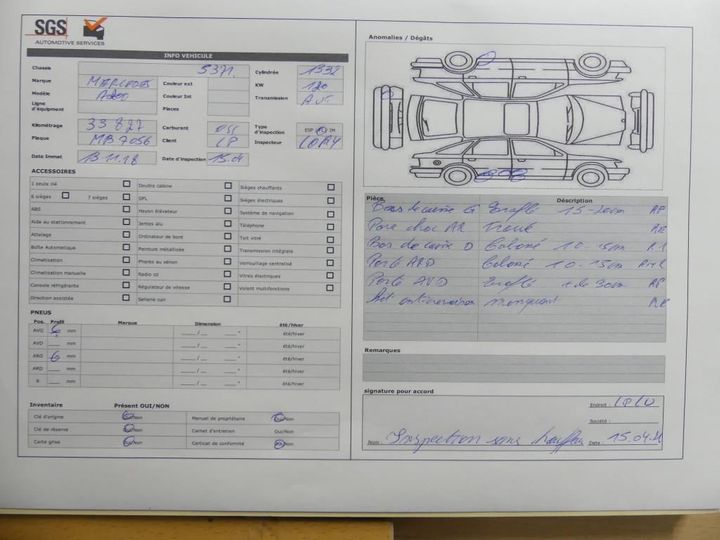 SGS
AUTOMOTIVE SERVICES
INFO VEHICULE
Chassis 5371. Cylindrée 1332
Marque MERCEDES Couleur ext KW 120
Modèle A200 Couleur Int Transmission AUT
Ligne d'équipement Pieces
Kilométrage 33 827 Carburant ESS Type d'inspection ESP IN
Plaque MB 7056 Client LP Inspecteur
Date Immat 13 11.18 Date d'inspection 15.04
ACCESSOIRES
1 seule clé Double cabine Sièges chauffants
6 sièges 7 sièges GPL Sièges électriques
ABS Hayon élévateur Système de navigation
Aide au stationnement Jantes alu Téléphone
Attelage Ordinateur de bord Toit vitré
Boîte Automatique Peinture métallisée Transmission intégrale
Climatisation Phares au xénon Verrouillage centralisé
Climatisation manuelle Radio cd Vitres électriques
Console réfrigérante Régulateur de vitesse Volant multifonctions
Direction assistée Sellerie cuir
PNEUS
Pos. Profil Marque Dimension été/hiver
AVG 6 mm ___ / ___ ___ " été/hiver
AVD ___ mm ___ / ___ ___ " été/hiver
ARG 6 mm ___ / ___ ___ " été/hiver
ARD ___ mm ___ / ___ ___ " été/hiver
R ___ mm ___ / ___ ___ " été/hiver
Inventaire Présent OUI/NON
Clé d'origine Oui/Non Manuel de propriétaire Oui/Non
Clé de réserve Oui/Non Carnet d'entretien Oui/Non
Carte grise Oui/Non Certicat de conformité Oui/Non
Anomalies / Dégâts
Pièce. Déscription
Bas de caisse G Eraflé 15-20cm RP
Pare choc AR Troué
Bas de caisse D Griffé 10-15cm
Porte ARD 10-15cm
Porte AVD Eraflé 30cm RP
manquant
Remarques
signature pour accord
Endroit :
Société :
Nom : Inspection sans chauffeur Date : 15.04.21